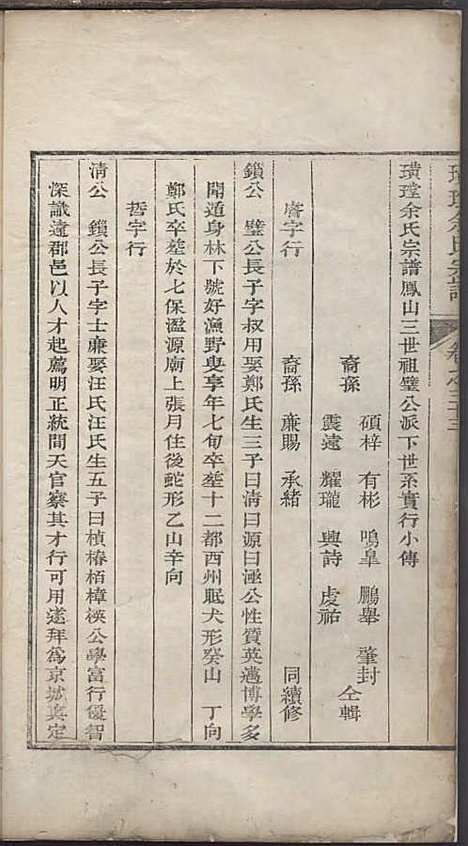 璜瑝余氏宗譜
卷之三十三
璜瑝余氏宗譜鳳山三世祖璧公派下世系實行小傳
碩梓 有彬 鳴皐 鵬舉 肇封
裔孫 仝輯
震遠 耀瓏 興詩 虔祐
裔孫 亷賜 承緒 同續修
詹字行
鎖公 璧公長子字叔用娶鄭氏生三子曰淸曰源曰溼公性質英邁博學多
聞道身林下號好漁野叟享年七旬卒塟十二都西州眠犬形癸山 丁向
鄭氏卒塟於七保溫源廟上張月住後蛇形乙山辛向
哲字行
淸公 鎖公長子字士亷娶汪氏汪氏生五子曰楨椿栢樟模公學富行優智
深識遠郡邑以人才起薦明正統間天官察其才行可用遂拜爲京城眞定